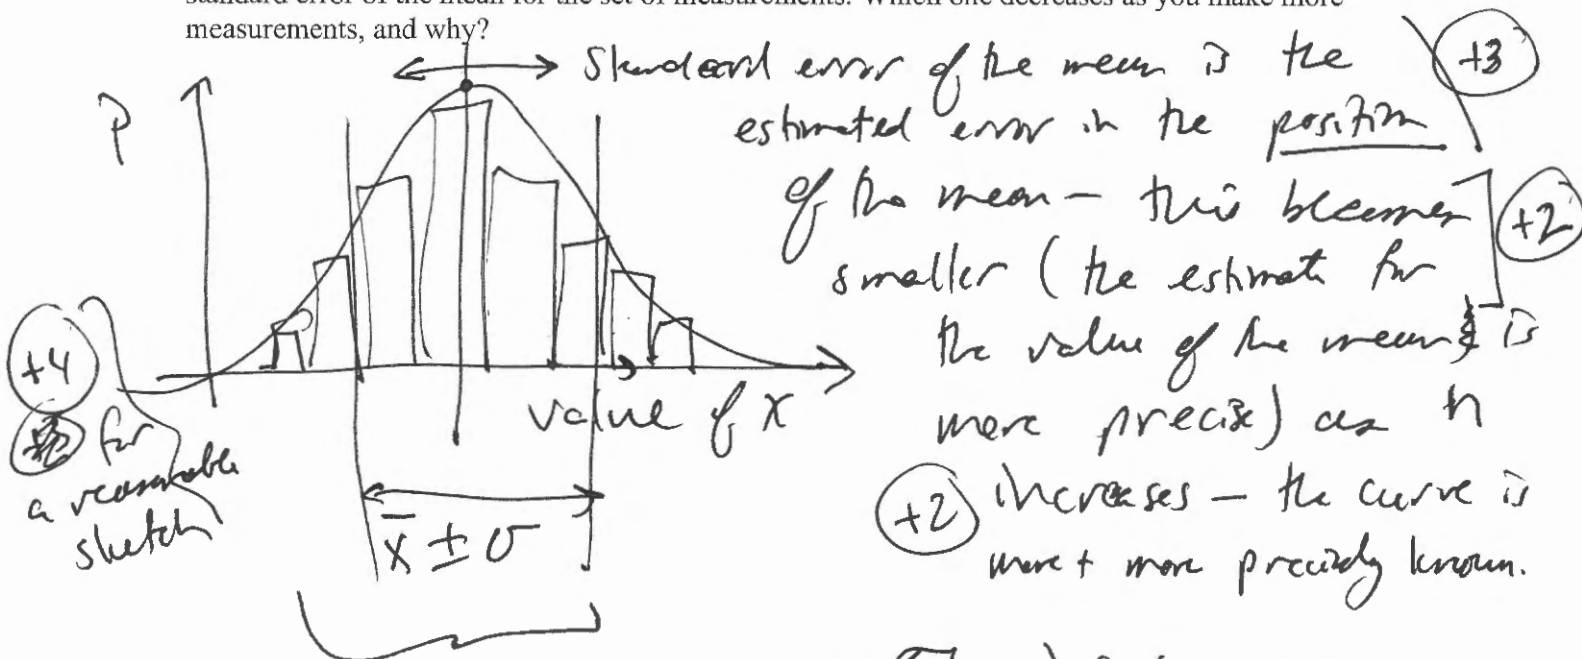 measurements, and why?
Standard error of the mean is the
+3
estimated error in the position
of the mean – this becomes
+2
smaller (the estimate for
the value of the mean is
more precise) as n
+2 increases – the curve is
more + more precisely known.
P
value of x
x̄ ± σ
+4
for
a reasonable
sketch